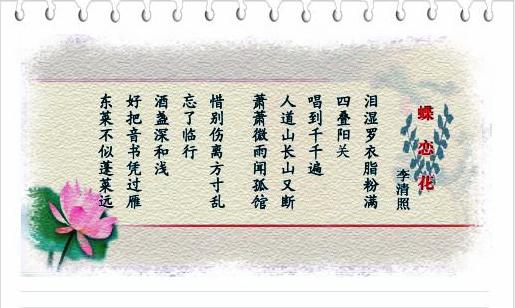 蝶恋花
李清照
泪湿罗衣脂粉满
四叠阳关
唱到千千遍
人道山长山又断
萧萧微雨闻孤馆
惜别伤离方寸乱
忘了临行
酒盏深和浅
好把音书凭过雁
东莱不似蓬莱远